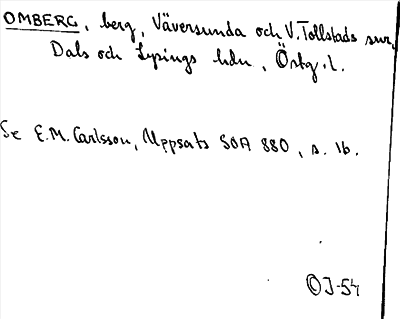 OMBERG, berg, Väversunda och V. Tollstads snr,
Dals och Lysings hdn, Östg.l.
Se E.M. Carlsson, Uppsats SOA 880, s. 16.
ⒸJ-54